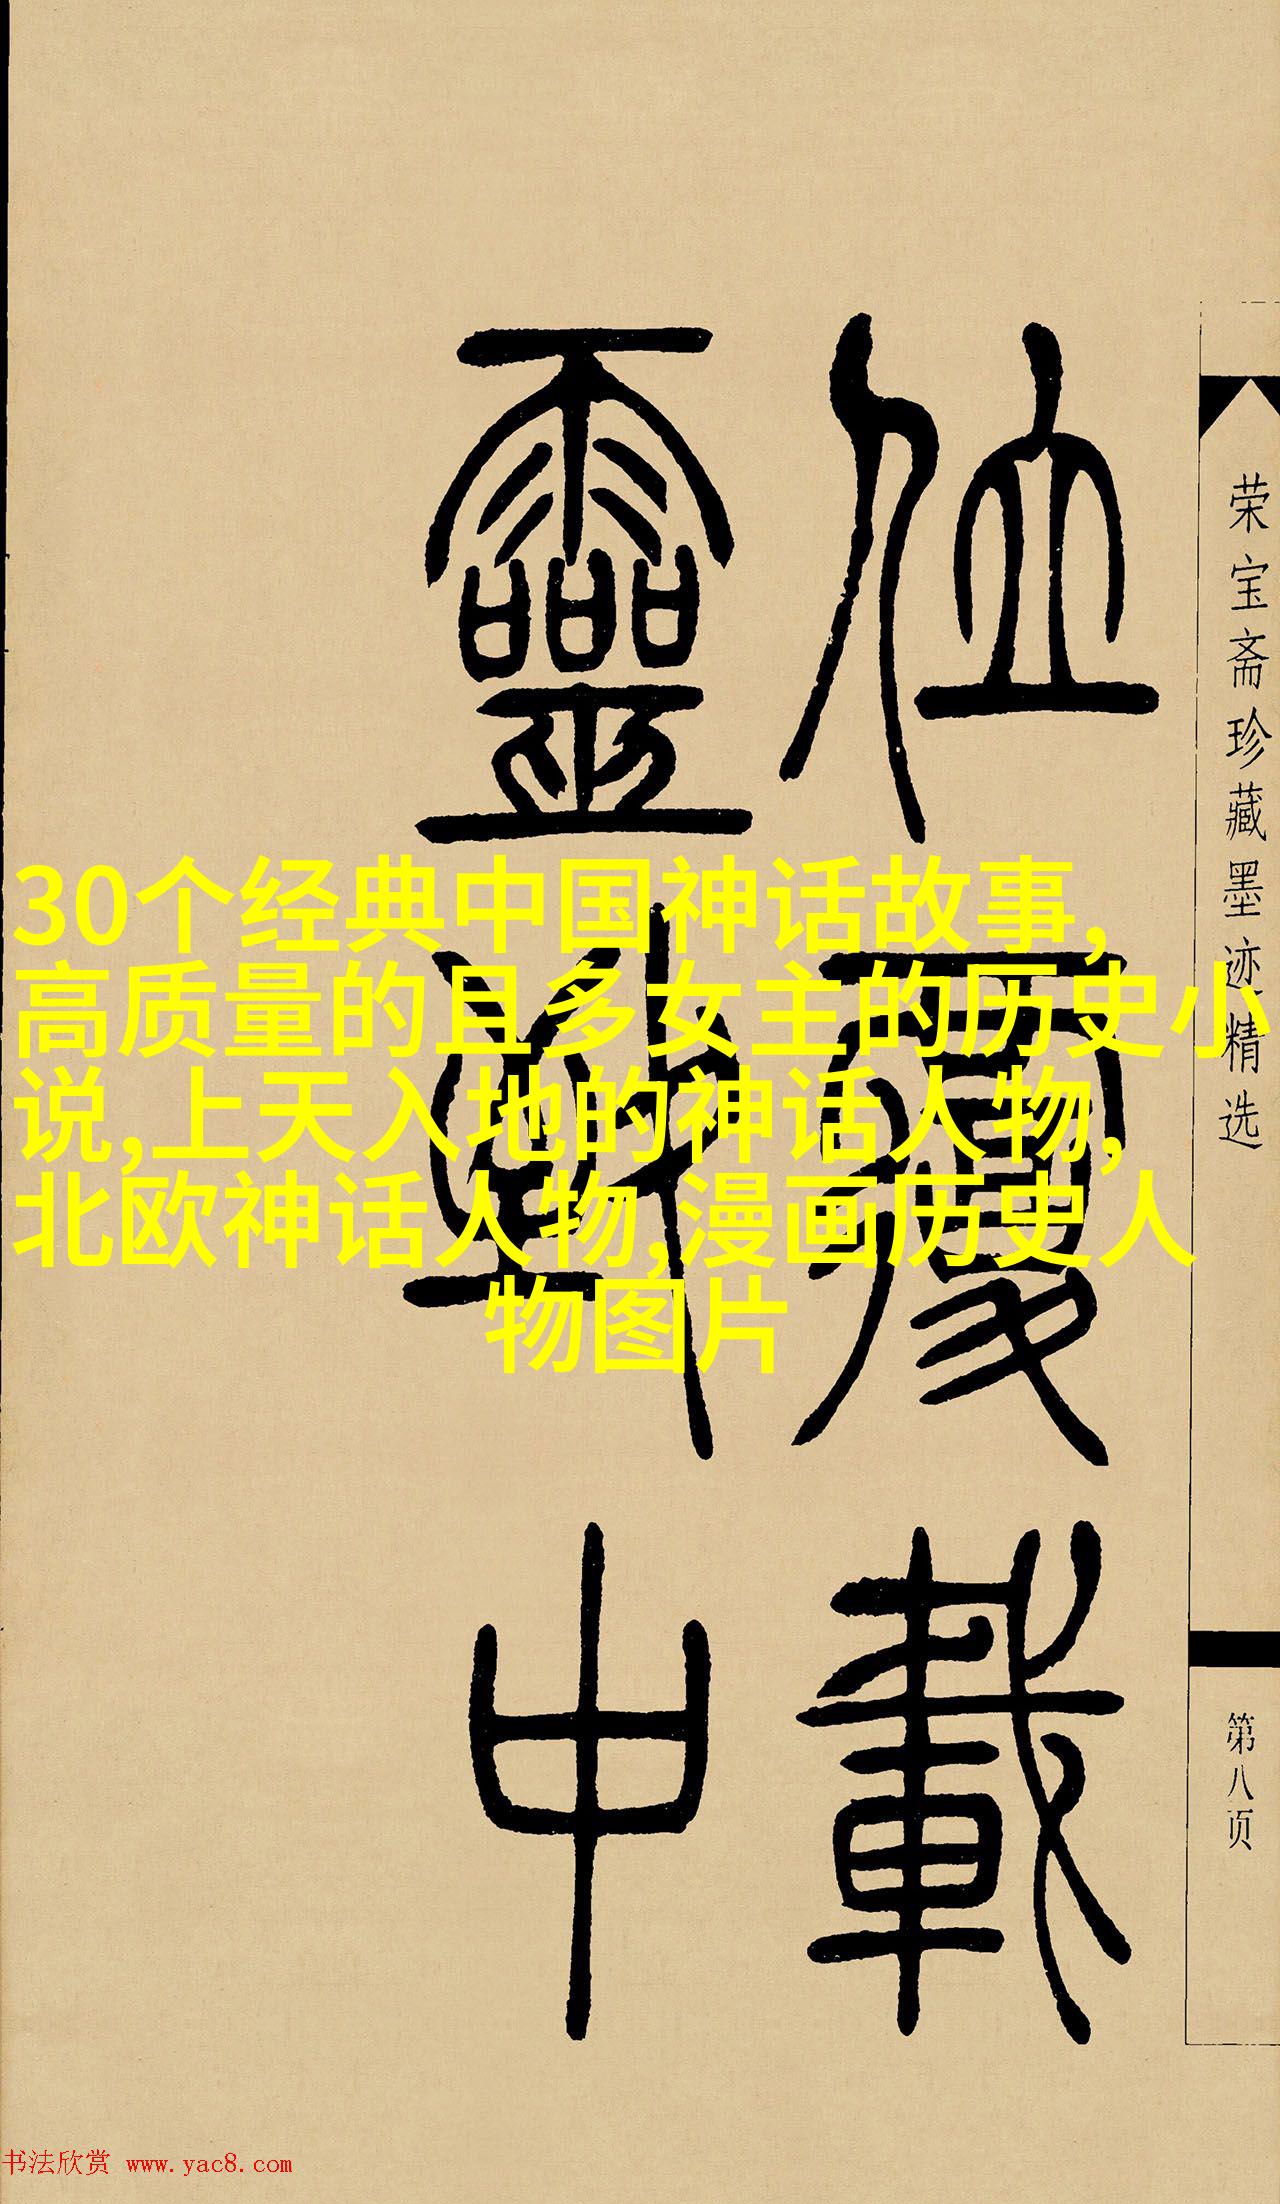 荣宝斋珍藏墨迹精选
第八页
位覆載
靈中
30个经典中国神话故事,
高质量的且多女主的历史小
说,上天入地的神话人物,
北欧神话人物,漫画历史人
物图片
书法欣赏 www.yac8.com